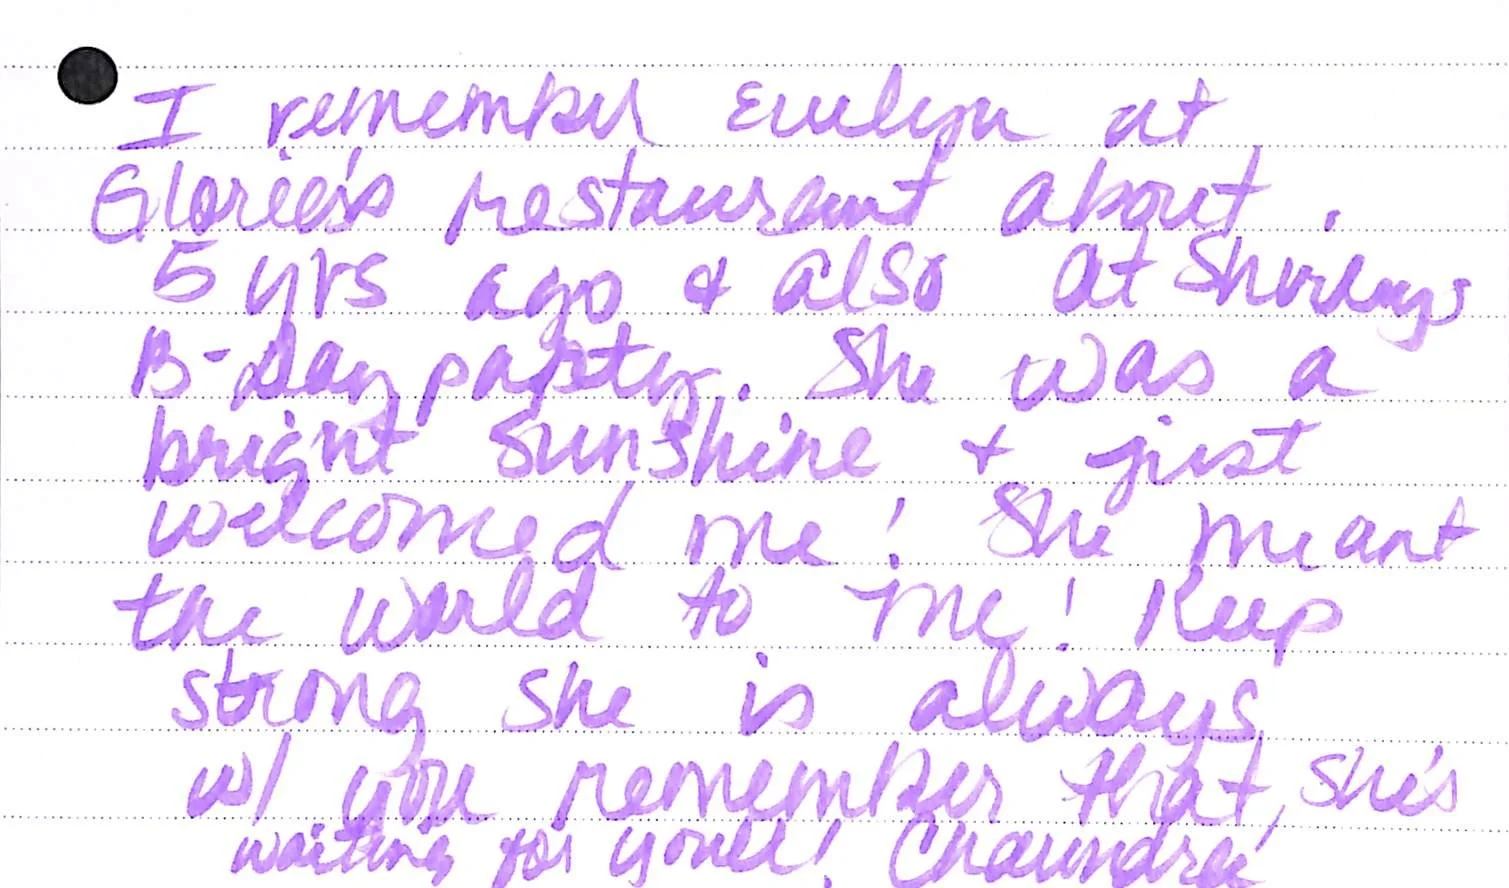 I remember Evelyn at
Glorie's restaurant about
5 yrs ago & also at Shirleys
B-Day party. She was a
bright sunshine + just
welcomed me! She meant
the world to me! Keep
strong she is always
w/ you remember that, she's
waiting for